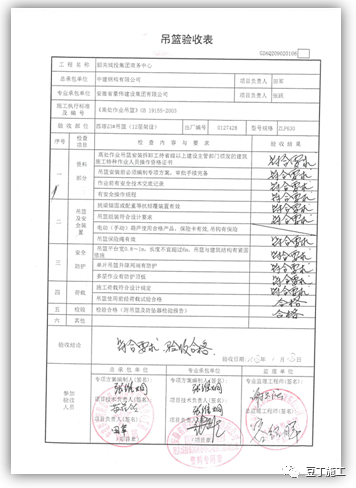 吊篮验收表
GDAQ209020106
工程名称 韶关城投集团商务中心
总承包单位 中建钢构有限公司 项目负责人 田军
专业承包单位 安徽省蒙伟建设集团有限公司 项目负责人
施工执行标准及编号 《高处作业吊篮》GB 19155-2003
验收部位 西塔23#吊篮(12层架设) 出厂编号 0127428 型号规格 ZLP630
序号 检查项目 检查内容与要求 验收结果
一 资料部分 高处作业吊篮安装拆卸工持省级以上建设主管部门颁发的建筑施工特种作业人员操作资格证书 符合要求
吊篮安装前必须编制专项方案,审批手续完备 符合要求
作业前有安全技术交底记录 符合要求
有安全操作规程 符合要求
二 吊篮及安全装置 挑梁锚固或配重等抗倾覆装置有效 符合要求
吊篮组装符合设计要求 符合要求
电动(手动)葫芦使用合格产品,保险卡有效,吊钩有保险
吊篮保险绳有效 符合要求
三 安全防护 吊篮平台宽0.8~1m,长度不宜超过6m,吊篮与建筑结构有紧固措施 符合要求
单片吊篮升降两端有防护 符合要求
多层作业有防护顶板 符合要求
四 荷载 施工荷载符合设计规定 符合要求
吊篮使用前经荷载试验合格 合格
五 检段 检验合格(防吊篮及防坠器检验报告) 合格
六 其他
验收结论 符合要求,验收合格。
验收日期 年 月 日
参加验收人员 总承包单位 专业承包单位 监理单位
专项方案编制人(签名): 专项方案编制人(签名): 专业监理工程师(签名):
项目技术负责人(签名): 项目技术负责人(签名): 总监理工程师(签名):
项目负责人(签名): 项目负责人(签名):
田军
豆丁施工